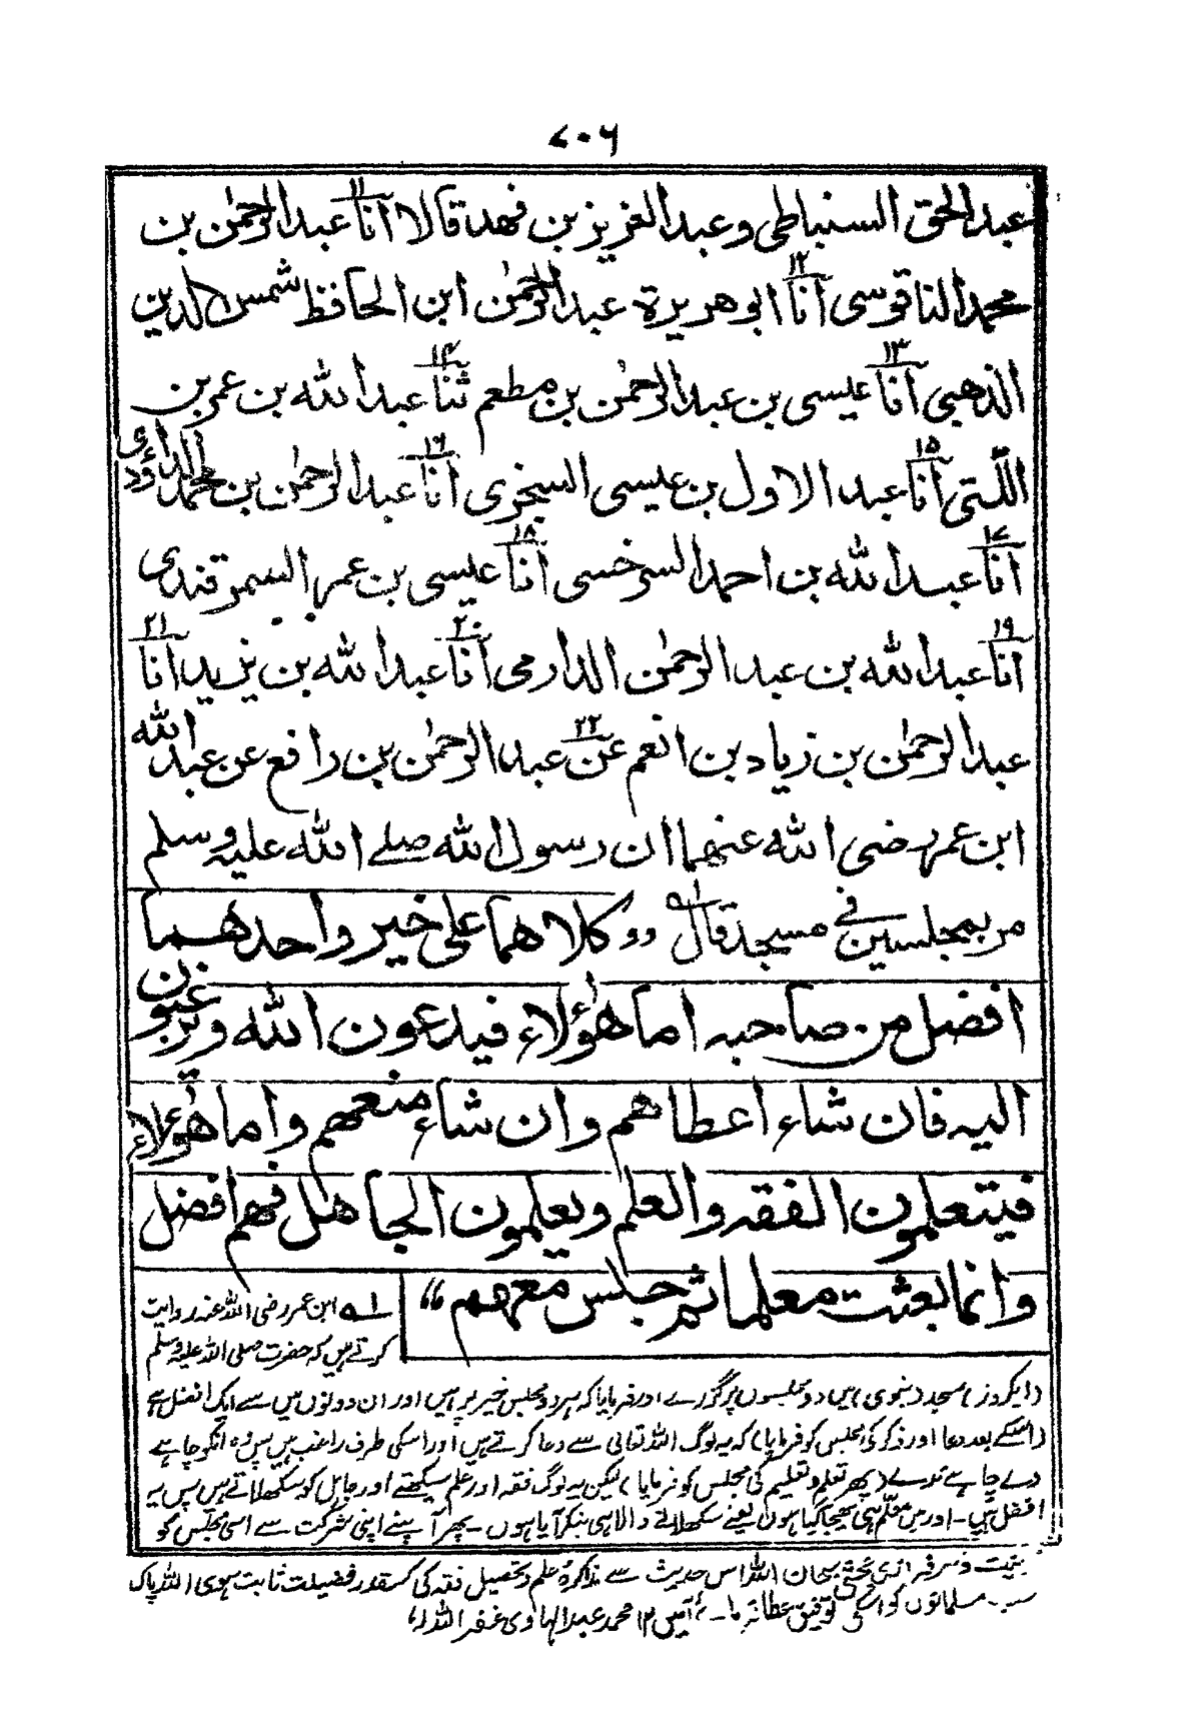 ٧٠٦
عبد الحق السنباطي وعبد العزيز بن فهد قالا انا ١١ عبد الرحمٰن بن
محمد الناقوسي انا ١٢ ابو هريرة عبد الرحمٰن ابن الحافظ شمس الدين
الذهبي انا ١٣ عيسى بن عبد الرحمٰن بن مطعم ثنا ١٤ عبد الله بن عمر بن
اللّتي انا ١٥ عبد الاول بن عيسى السجزي انا ١٦ عبد الرحمٰن بن محمد الداؤدي
انا ١٧ عبد الله بن احمد السرخسي انا ١٨ عيسى بن عمر السمرقندي
انا ١٩ عبد الله بن عبد الرحمٰن الدارمي انا ٢٠ عبد الله بن يزيد انا ٢١
عبد الرحمٰن بن زياد بن انعم عن ٢٢ عبد الرحمٰن بن رافع عن عبد الله
ابن عمر رضي الله عنهما ان رسول الله صلے الله عليه وسلم
مر بمجلسين في مسجد قال ” كلاهما على خير واحدهما
افضل من صاحبه اما هؤلاء فيدعون الله ويرغبون
اليه فان شاء اعطاهم وان شاء منعهم واما هؤلاء
فيتعلمون الفقه والعلم ويعلمون الجاهل فهم افضل
وانما بعثت معلما ثم جلس معهم “
لـه ابن عمر رضی اللہ عنہ روایت
کرتے ہیں کہ حضرت صلی اللہ علیہ وسلم
(ایکروز) مسجد (نبوی) میں دو مجلسوں پر گزرے اور فرمایا کہ ہر دو مجلس خیر پر ہیں اور ان دونوں میں سے ایک افضل ہے
(اسکے بعد دعا اور ذکر کی مجلس کو فرمایا) کہ یہ لوگ اللہ تعالی سے دعا کرتے ہیں اور اسکی طرف راغب ہیں پس وہ انکو چاہے
دے چاہے نہ دے (پھر تعلم و تعلیم کی مجلس کو فرمایا) لیکن یہ لوگ فقہ اور علم سیکھتے اور جاہل کو سکھلاتے ہیں پس یہ
افضل ہیں۔ اور میں معلّم ہی بھیجا گیا ہوں یعنے سکھلانے والا ہی بنکر آیا ہوں۔ پھر آپنے اپنی شرکت سے اسی مجلس کو
زینت و سرفرازی بخشی سبحان اللہ اس حدیث سے مذاکرۂ علم و تحصیل فقہ کی کسقدر فضیلت ثابت ہوی اللہ پاک
سب مسلمانوں کو اسکی توفیق عطا فرما۔ آمین ١٢ محمد عبد الہادی غفر اللہ لہ